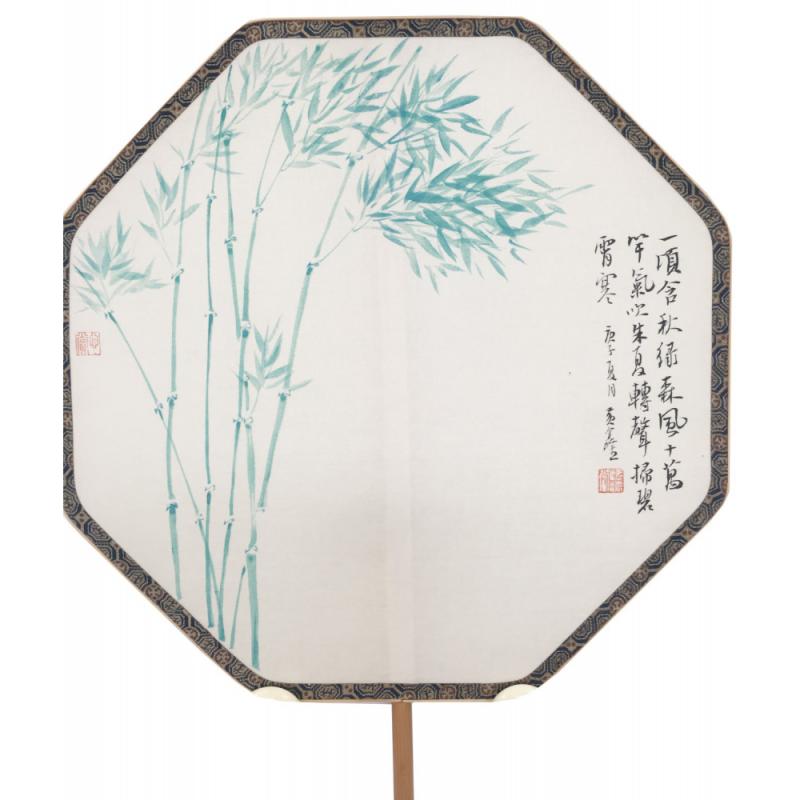 一頃含秋綠森風十萬
竿氣吹朱夏轉聲掃碧
霄寒 庚子夏月